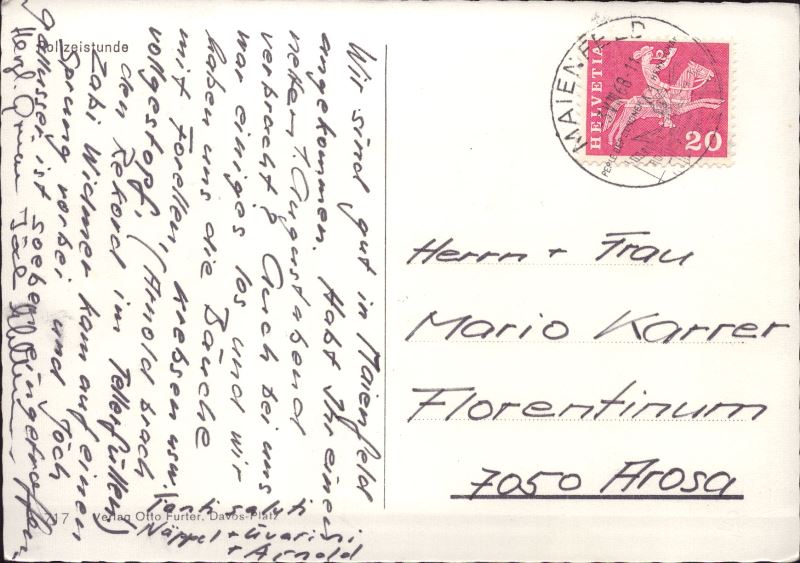 Polizeistunde
Wir sind gut in Maienfeld
angekommen. Habt Ihr einen
netten 1. Augustabend
verbracht? Auch bei uns
war einiges los und wir
haben uns die Bäuche
mit Forellen, Krebsen usw.
vollgestopf, (Arnold brach
den Rekord im Tellerfüllen)
Zabi Widmer kam auf einen
Sprung vorbei und Jöch
ist soeben eingetroffen.
Herzl. Grüsse
Tanti saluti
Näppel +
+ Arnold
717 Verlag Otto Furter, Davos-Platz
MAIENFELD
68
HELVETIA
20
Herrn + Frau
Mario Karrer
Florentinum
7050 Arosa